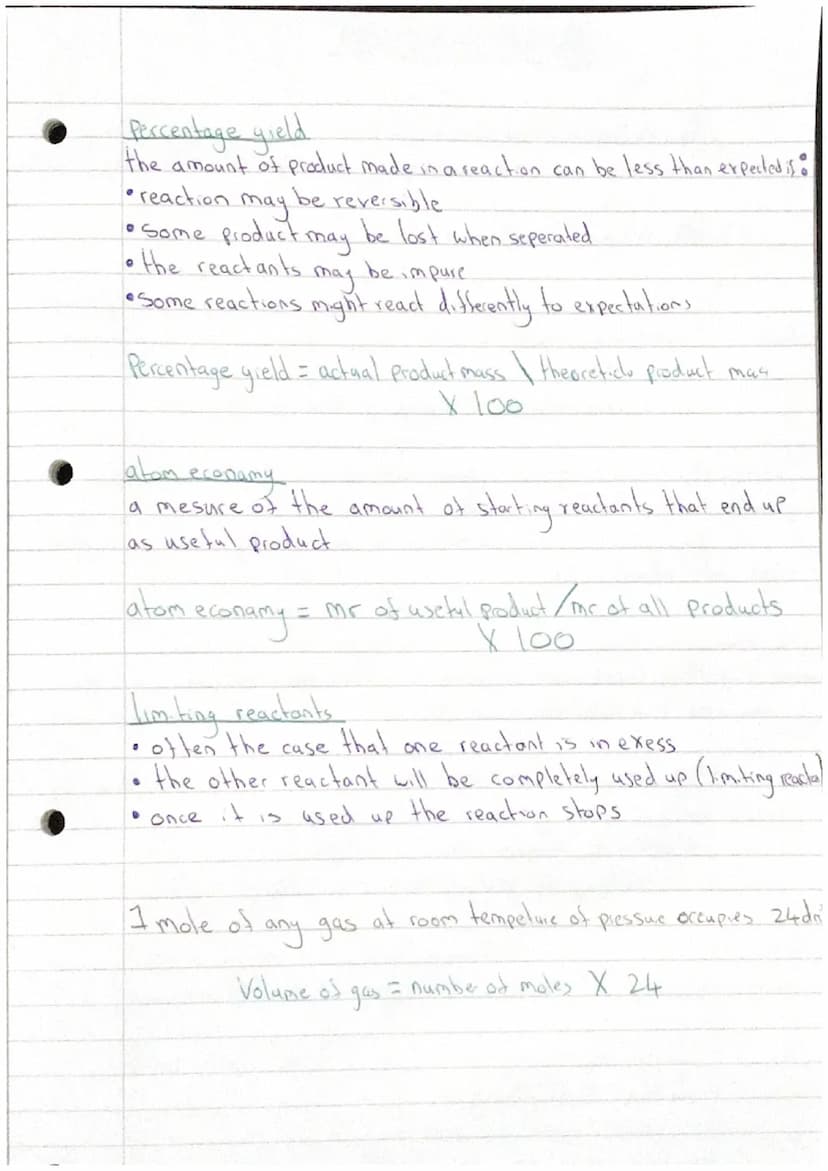 Percentage yield
the amount of product made in a reaction can be less than expected if:
• reaction may be reversible
• Some product may be lost when seperated
• the reactants may be impure
• Some reactions might react differently to expectations
Percentage yield = actual product mass \ product mass
X 100
atom econamy
a mesure of the amount of starting reactants that end up
as useful product
atom econamy = mr of useful product / mr of all products
X 100
limiting reactants
• often the case that one reactant is in exess
• the other reactant will be completely used up (limiting reacta
• once it is used up the reaction stops
1 mole of any gas at room of pressure occupies 24d
Volume of gas = number of moles X 24